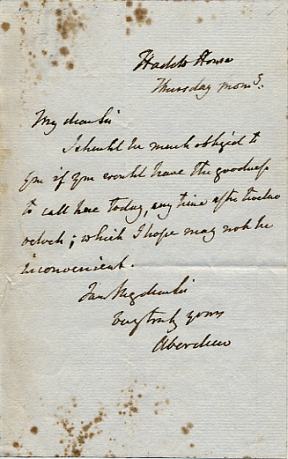 Haddo House
Thursday morng.
My dear Sir
I should be much obliged to
you if you would have the goodness
to call here today, any time after twelve
oclock; which I hope may not be
inconvenient.
I am My dear Sir
very truly yours
Aberdeen